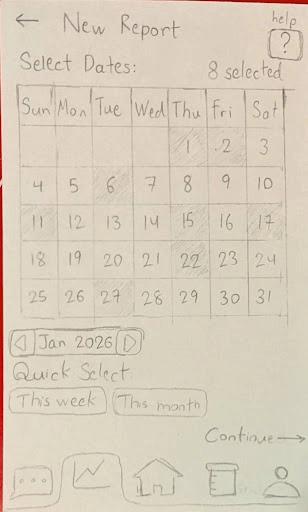 ← New Report
help
?
Select Dates:
8 selected
Sun Mon Tue Wed Thu Fri Sat
1 2 3
4 5 6 7 8 9 10
11 12 13 14 15 16 17
18 19 20 21 22 23 24
25 26 27 28 29 30 31
Jan 2026
Quick Select
This week This month
Continue →